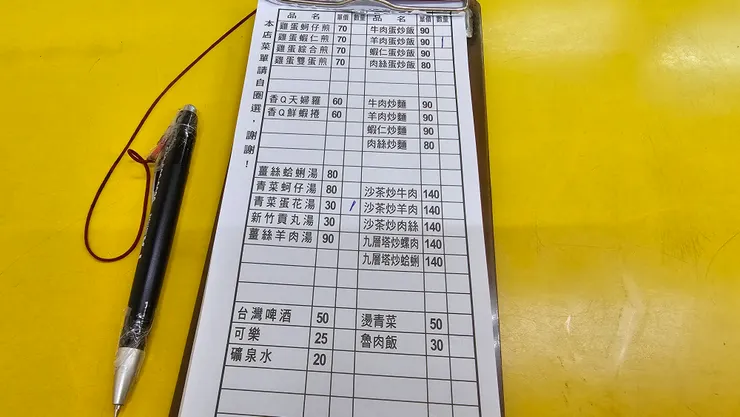 本店菜單請自圈選，謝謝！
品名 單價 數量 品名 單價 數量
雞蛋蚵仔煎 70 牛肉蛋炒飯 90
雞蛋蝦仁煎 70 羊肉蛋炒飯 90 /
雞蛋綜合煎 70 蝦仁蛋炒飯 90
雞蛋雙蛋煎 70 肉絲蛋炒飯 80
香Q天婦羅 60 牛肉炒麵 90
香Q鮮蝦捲 60 羊肉炒麵 90
蝦仁炒麵 90
肉絲炒麵 80
薑絲蛤蜊湯 80
青菜蚵仔湯 80 沙茶炒牛肉 140
青菜蛋花湯 30 / 沙茶炒羊肉 140
新竹貢丸湯 30 沙茶炒肉絲 140
薑絲羊肉湯 90 九層塔炒螺肉 140
九層塔炒蛤蜊 140
台灣啤酒 50 燙青菜 50
可樂 25 魯肉飯 30
礦泉水 20